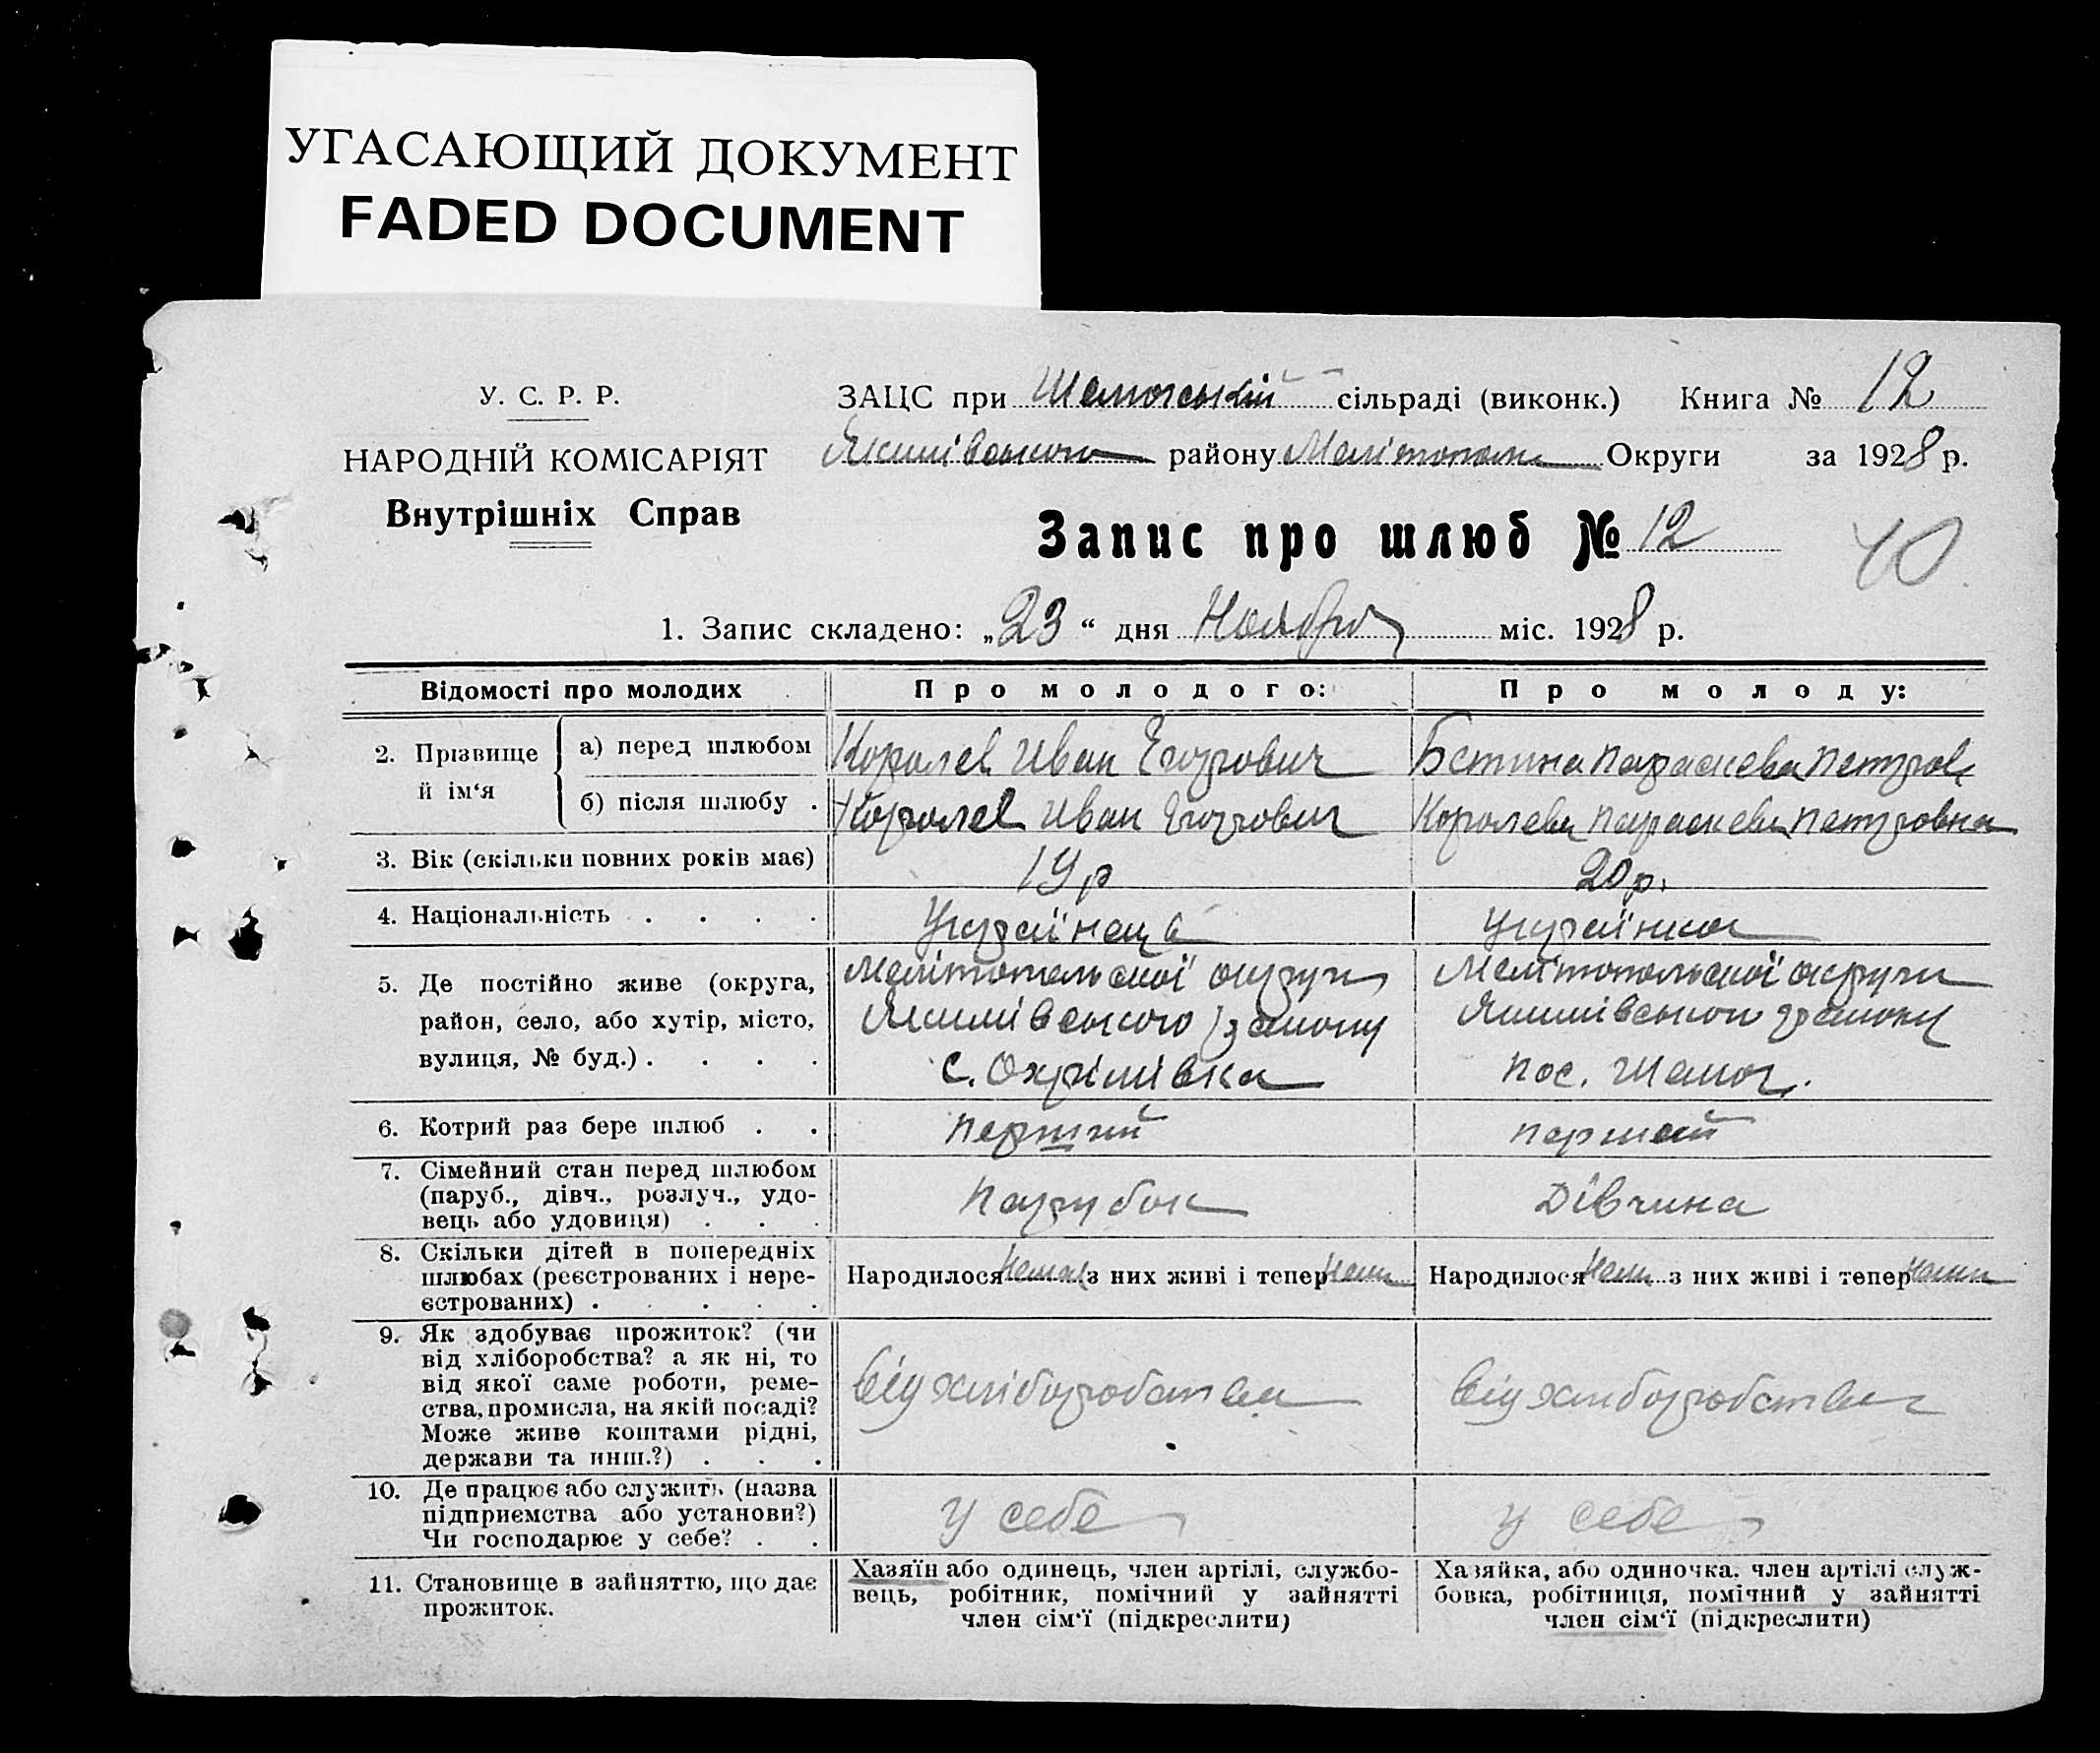 УГАСАЮЩИЙ ДОКУМЕНТ
FADED DOCUMENT
У. С. Р. Р.
НАРОДНІЙ КОМІСАРІЯТ
Внутрішніх Справ
ЗАЦС при сільраді (виконк.) Книга № 12
Якимівського району Мелітополь Округи за 1928 р.
Запис про шлюб № 12
40
1. Запис складено: „23“ дня Ноября міс. 1928 р.
Відомості про молодих Про молодого: Про молоду:
2. Прізвище й ім‘я
а) перед шлюбом Королев Иван Егорович Параскева Петров
б) після шлюбу . Королев Иван Егорович Королева Параскева Петровна
3. Вік (скільки повних років має) 19 р 20 р.
4. Національність . . . . Українець Українка
5. Де постійно живе (округа,
район, село, або хутір, місто,
вулиця, № буд.) . . . .
Мелітопольської округи
Якимівського району
с. Охрімівка
Мелітопольської округи
Якимівського району
пос.
6. Котрий раз бере шлюб . . перший перший
7. Сімейний стан перед шлюбом
(паруб., дівч., розлуч., удо-
вець або удовиця) . . .
Парубок Дівчина
8. Скільки дітей в попередніх
шлюбах (реєстрованих і нере-
єстрованих) . . . . .
Народилося нема з них живі і тепер нема Народилося нема з них живі і тепер нема
9. Як здобуває прожиток? (чи
від хліборобства? а як ні, то
від якої саме роботи, реме-
ства, промисла, на якій посаді?
Може живе коштами рідні,
держави та инш.?) . . .
від хліборобства від хліборобства
10. Де працює або служить (назва
підприємства або установи?)
Чи господарює у себе? . .
у себе у себе
11. Становище в зайняттю, що дає
прожиток.
Хазяїн або одинець, член артілі, службо-
вець, робітник, помічний у зайнятті
член сім‘ї (підкреслити)
Хазяйка, або одиночка, член артілі служ-
бовка, робітниця, помічний у зайнятті
член сім‘ї (підкреслити)